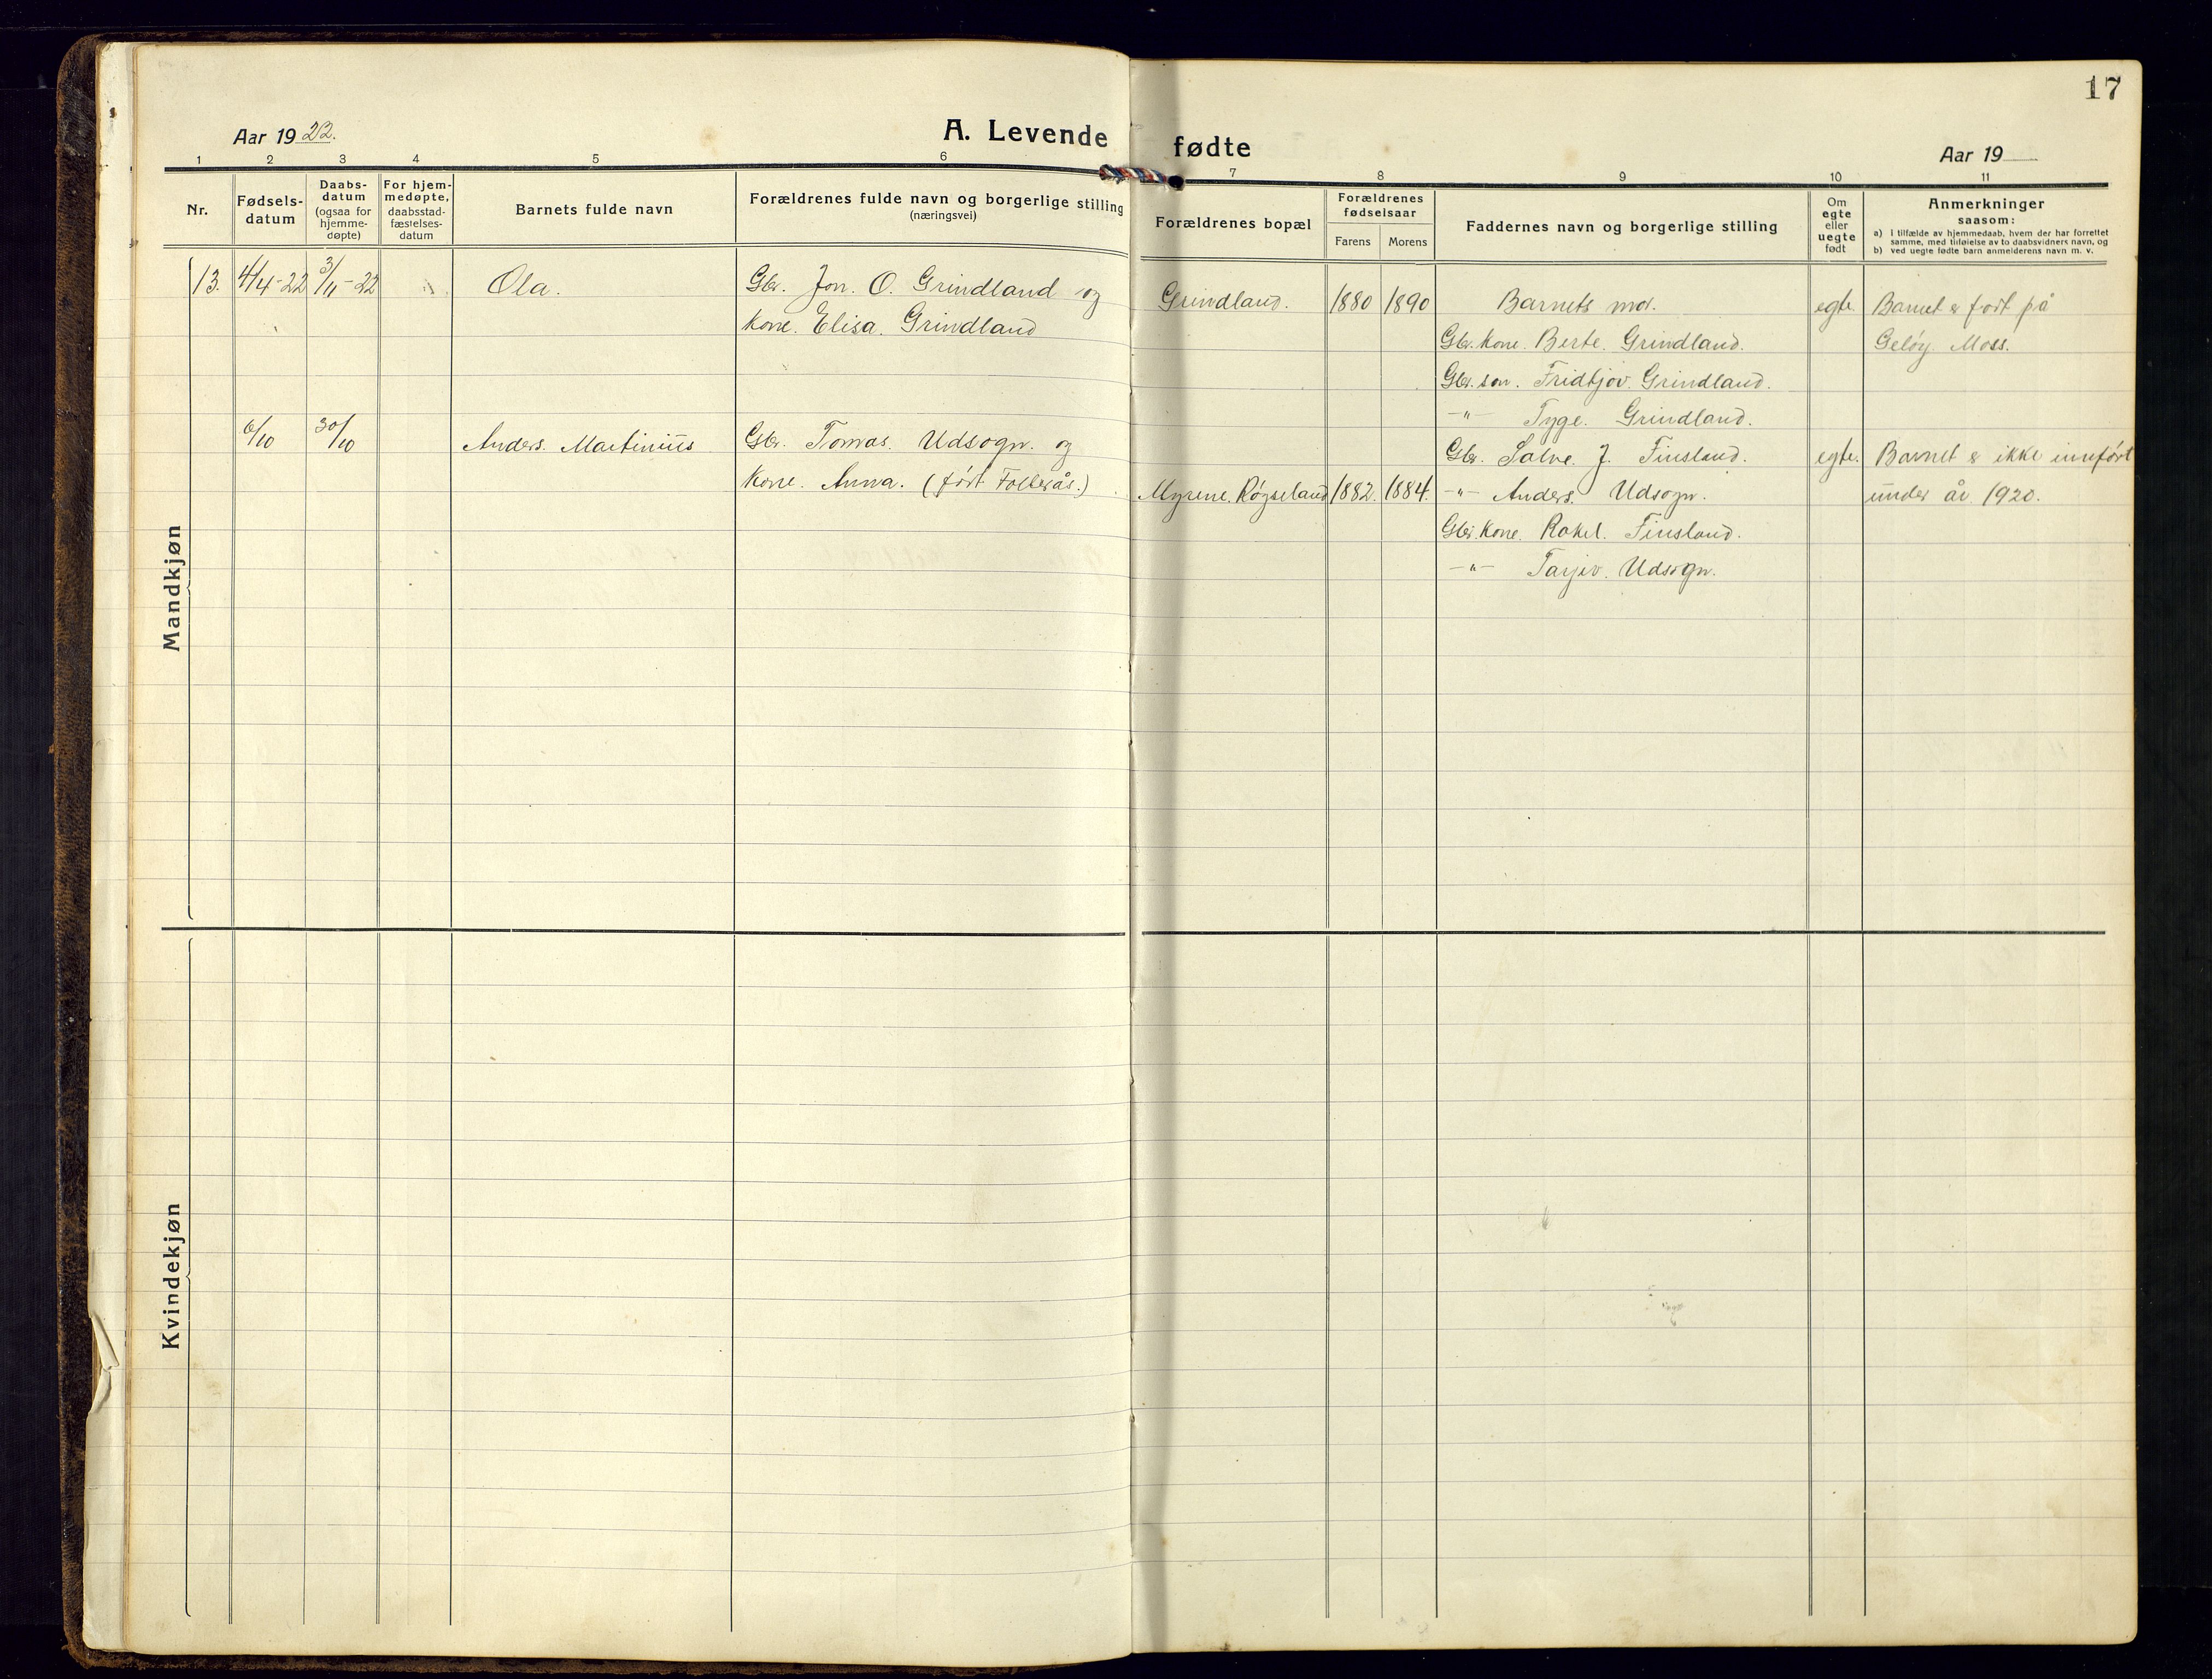 17
Aar 1922.
A. Levende fødte
Aar 19
1 2 3 4 5 6 7 8 9 10 11
Nr.
Fødsels-
datum
Daabs-
datum
(ogsaa for
hjemme-
døpte)
For hjem-
medøpte,
daabsstad-
fæstelses-
datum
Barnets fulde navn
Forældrenes fulde navn og borgerlige stilling
(næringsvei)
Forældrenes bopæl
Forældrenes
fødselsaar
Farens Morens
Faddernes navn og borgerlige stilling
Om
egte
eller
uegte
født
Anmerkninger
saasom:
a) I tilfælde av hjemmedaab, hvem der har forrettet
samme, med tilføielse av to daabsvidners navn, og
b) ved uegte fødte barn anmelderens navn m. v.
Mandkjøn
13. 4/4-22 3/11-22 Ola. Gbr. Jon. O. Grindland og Grindland. 1880 1890 Barnets mor. egte. Barnet er født på
Kone. Elisa. Grindland Gbr. Kone. Berte. Grindland. Geløy. Moss.
Gbr. søn. Fridtjov. Grindland.
-"- Tyge. Grindland.
6/10 30/10 Anders. Martinius Gbr. Tomas. Udsogn. og Gbr. Salve. J. Finsland. egte. Barnet er ikke innført
Kone. Anna. (født Follerås.) Myrene, Røyseland 1882. 1884. -"- Anders. Udsogn. under år 1920.
Gbr. Kone. Rakel. Finsland.
-"- Tarjer. Udsogn.
Kvindekjøn